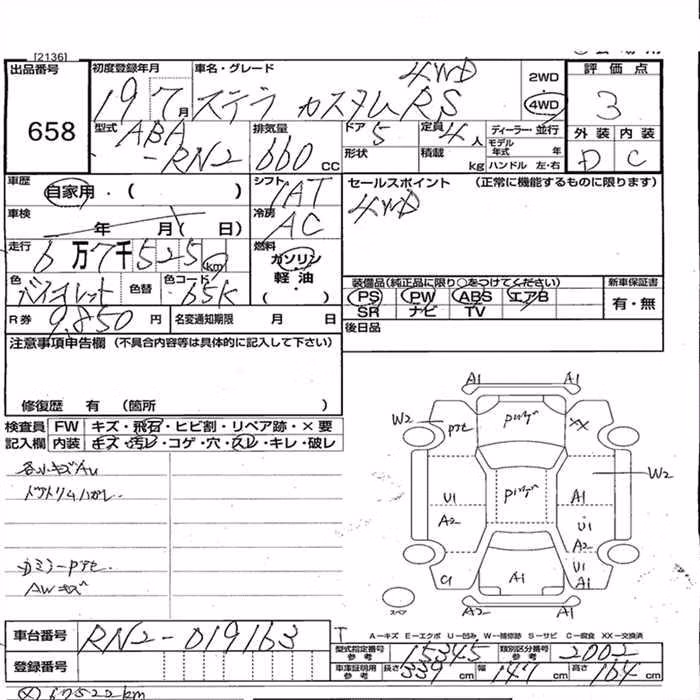 [2136]
出品番号
658
初度登録年月
19 7月
車名・グレード
4WD
ステラ カスタムRS
2WD
4WD
評価点
3
外装 内装
D C
型式
ABA
-RN2
排気量
660 CC
ドア 5
定員 4人
ディーラー・並行
モデル年式 年
形状
積載 kg
ハンドル 左・右
車歴
自家用・( )
シフト
IAT
セールスポイント (正常に機能するものに限ります)
4WD
車検
年 月( 日)
冷房
AC
走行
6万7千525km
燃料
ガソリン
軽油
( ・ )
色
バイオレット
色替
色コード
65K
装備品(純正品に限り○をつけてください)
新車保証書
PS PW ABS エアB
SR ナビ TV
有・無
R券 9,850円
名変通知期限 月 日
後日品
注意事項申告欄 (不具合内容等は具体的に記入して下さい)
修復歴 有 (箇所 )
検査員 FW キズ・飛石・ヒビ割・リペア跡・×要
記入欄 内装 キズ・汚レ・コゲ・穴・スレ・キレ・破レ
各小キズAU
ドアトリムハガレ
カミラーPアセ
AWキズ
A1 A1
W2 Pアセ ピンゲ XX
W2
U1 ピンゲ A1
A2 U1
A2
C1 A1 U1
A1
スペア
A2 A1
A—キズ E—エクボ U—凹み W—補修跡 S—サビ C—腐食 XX—交換済
車台番号 RN2-019163
型式指定番号 参考 15345
類別区分番号 参考 2002
登録番号
車庫証明用 参考 長さ339cm 幅147cm 高さ164cm
67522km